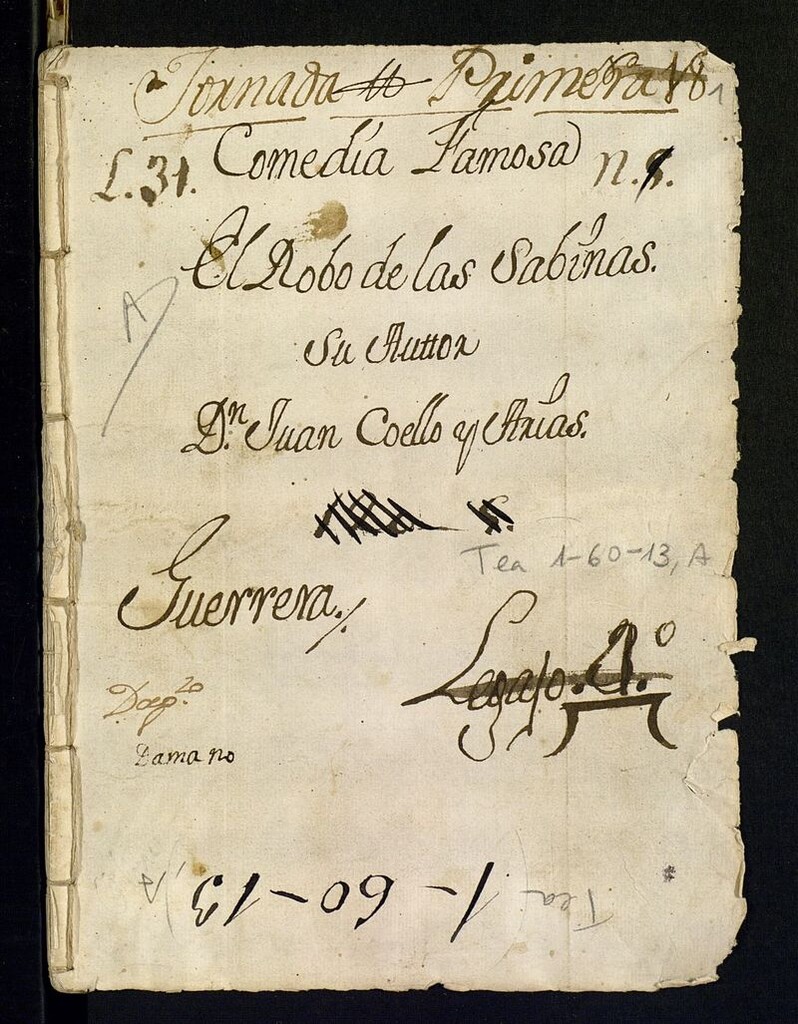 Jornada Primera
L. 31. Comedia Famosa n.
El Robo de las Sabinas.
Su Auttor
D.ⁿ Juan Coello y Arias.
Tea 1-60-13, A
Guerrera.
Legajo. 1.º
Dama no
Tea 1-60-13, A
A